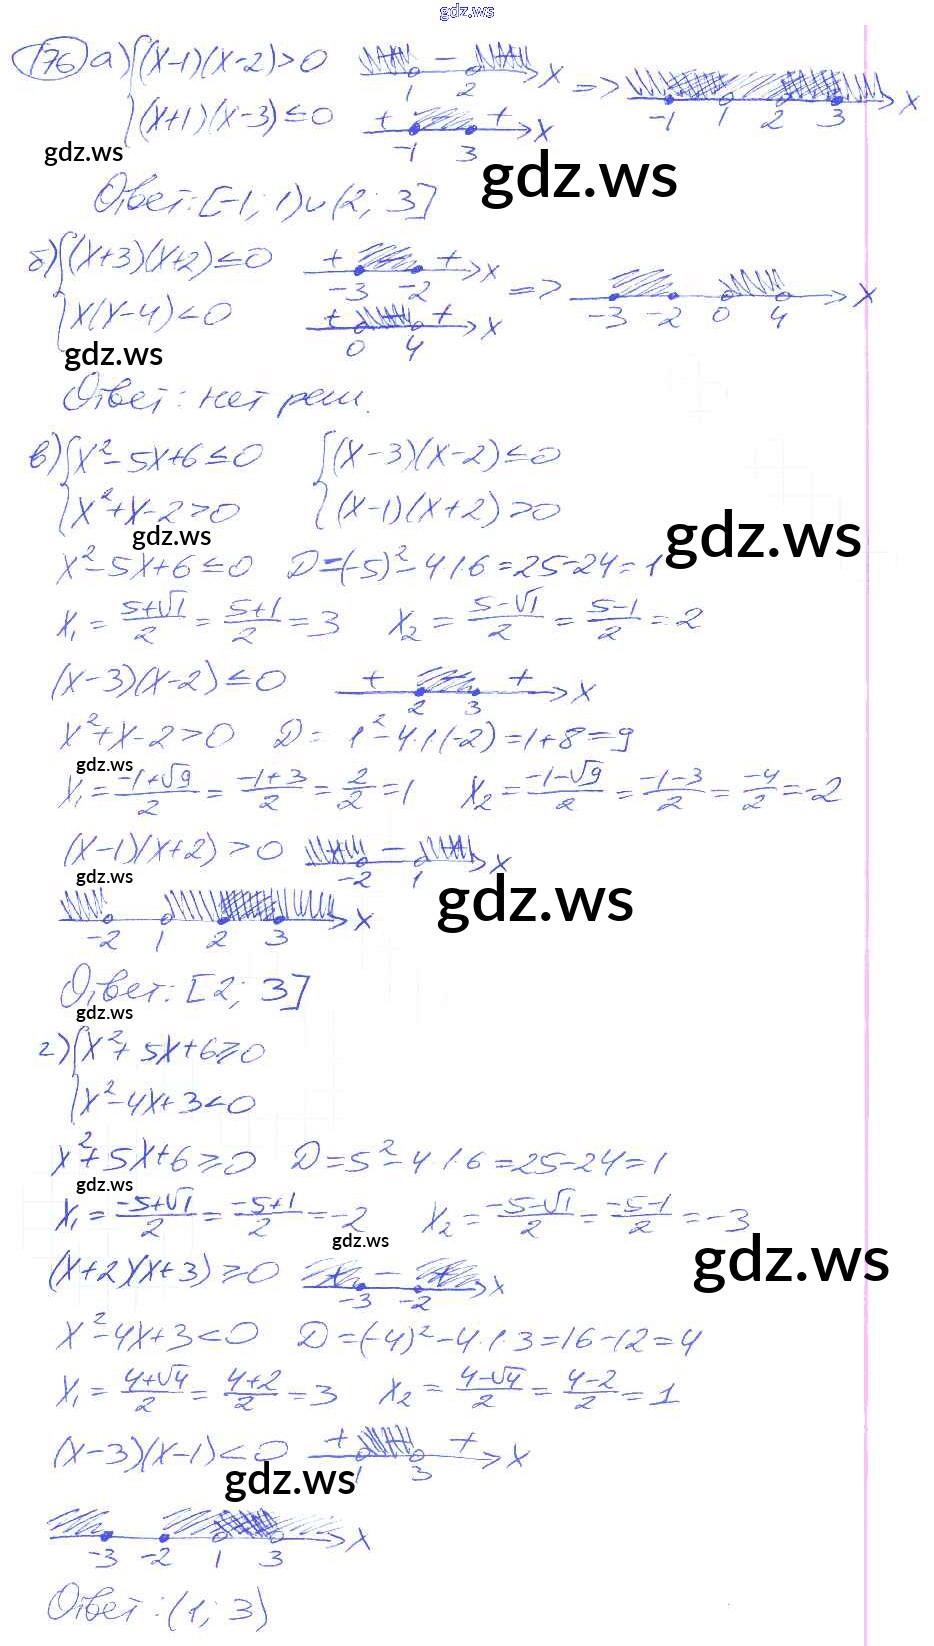 gdz.ws
176 а) { (x-1)(x-2)>0 + - + x 1 2
{ (x+1)(x-3)≤0 + + x -1 3 => x -1 1 2 3
gdz.ws gdz.ws
Ответ: [-1; 1)∪(2; 3]
б) { (x+3)(x+2)≤0 + + x -3 -2
{ x(x-4)<0 + + x 0 4 => x -3 -2 0 4
gdz.ws
Ответ: нет реш.
в) { x²-5x+6≤0 { (x-3)(x-2)≤0
{ x²+x-2>0 { (x-1)(x+2)>0
gdz.ws gdz.ws
x²-5x+6≤0 D=(-5)²-4·1·6=25-24=1
x₁ = (5+√1)/2 = (5+1)/2 = 3 x₂ = (5-√1)/2 = (5-1)/2 = 2
(x-3)(x-2)≤0 + + x 2 3
x²+x-2>0 D = 1²-4·1·(-2)=1+8=9
gdz.ws
x₁ = (-1+√9)/2 = (-1+3)/2 = 2/2 = 1 x₂ = (-1-√9)/2 = (-1-3)/2 = -4/2 = -2
(x-1)(x+2)>0 + - + x -2 1
gdz.ws gdz.ws
x -2 1 2 3
Ответ: [2; 3]
gdz.ws
г) { x²+5x+6≥0
{ x²-4x+3<0
x²+5x+6≥0 D=5²-4·1·6=25-24=1
gdz.ws
x₁ = (-5+√1)/2 = (-5+1)/2 = -2 x₂ = (-5-√1)/2 = (-5-1)/2 = -3
gdz.ws gdz.ws
(x+2)(x+3)≥0 + - + x -3 -2
x²-4x+3<0 D=(-4)²-4·1·3=16-12=4
x₁ = (4+√4)/2 = (4+2)/2 = 3 x₂ = (4-√4)/2 = (4-2)/2 = 1
(x-3)(x-1)<0 + + x 1 3
gdz.ws
x -3 -2 1 3
Ответ: (1; 3)